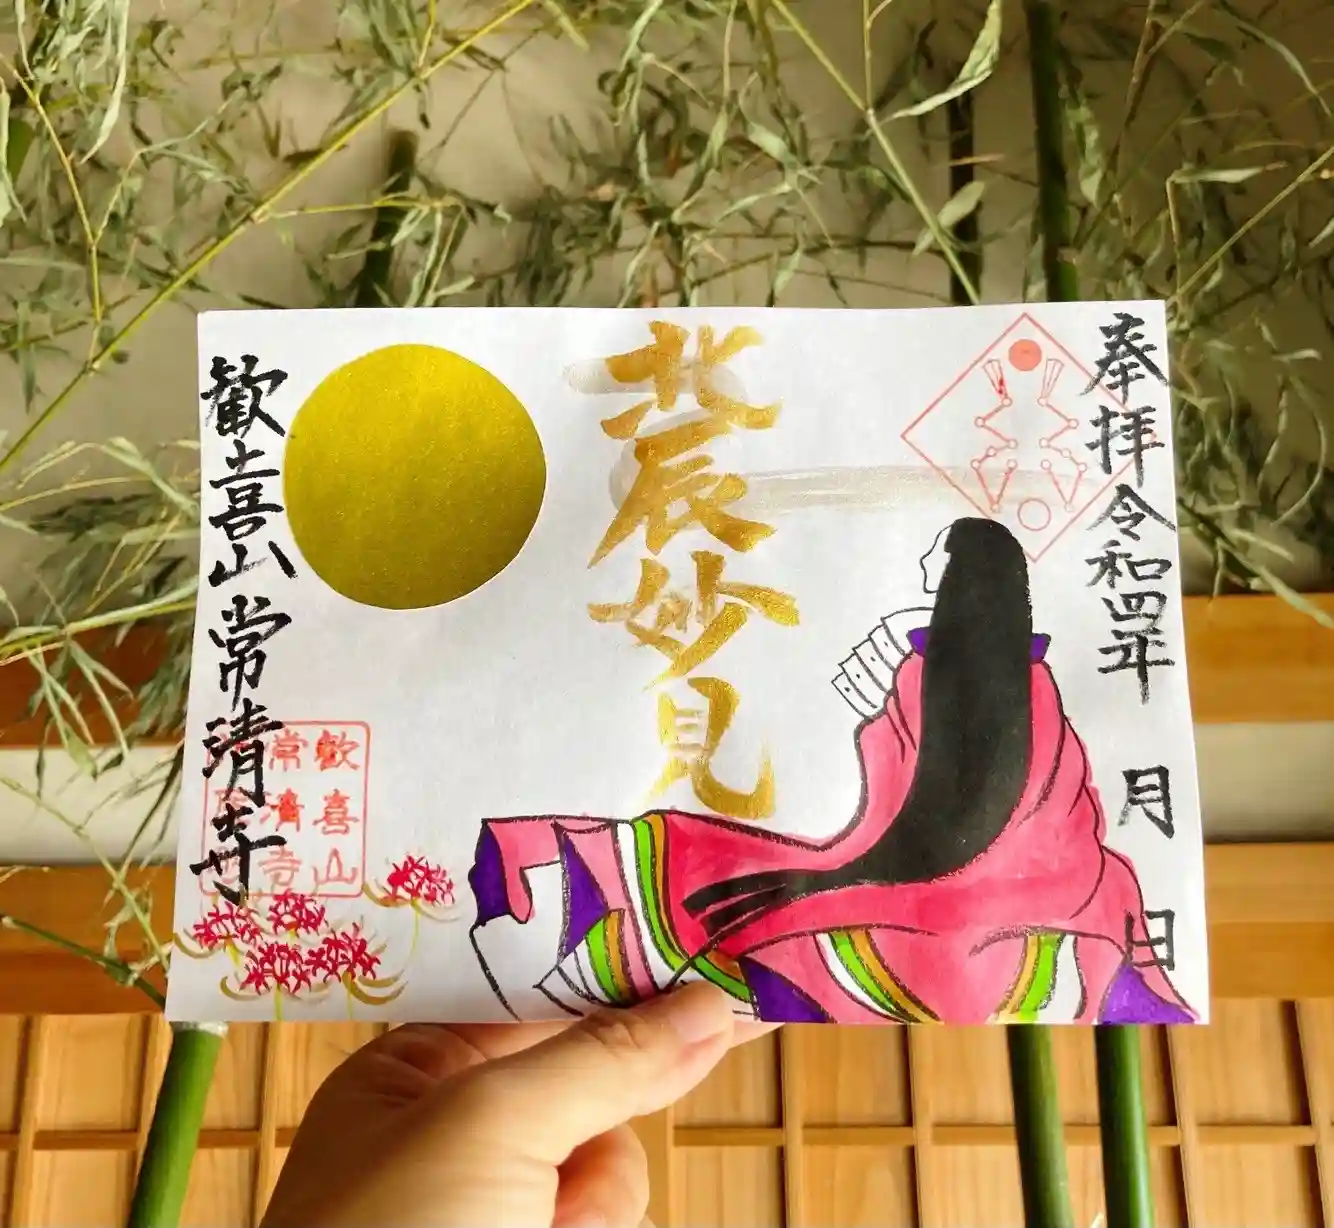 奉拝 令和四年 月 日
北辰妙見
歓喜山 常清寺
歓喜山
常清寺